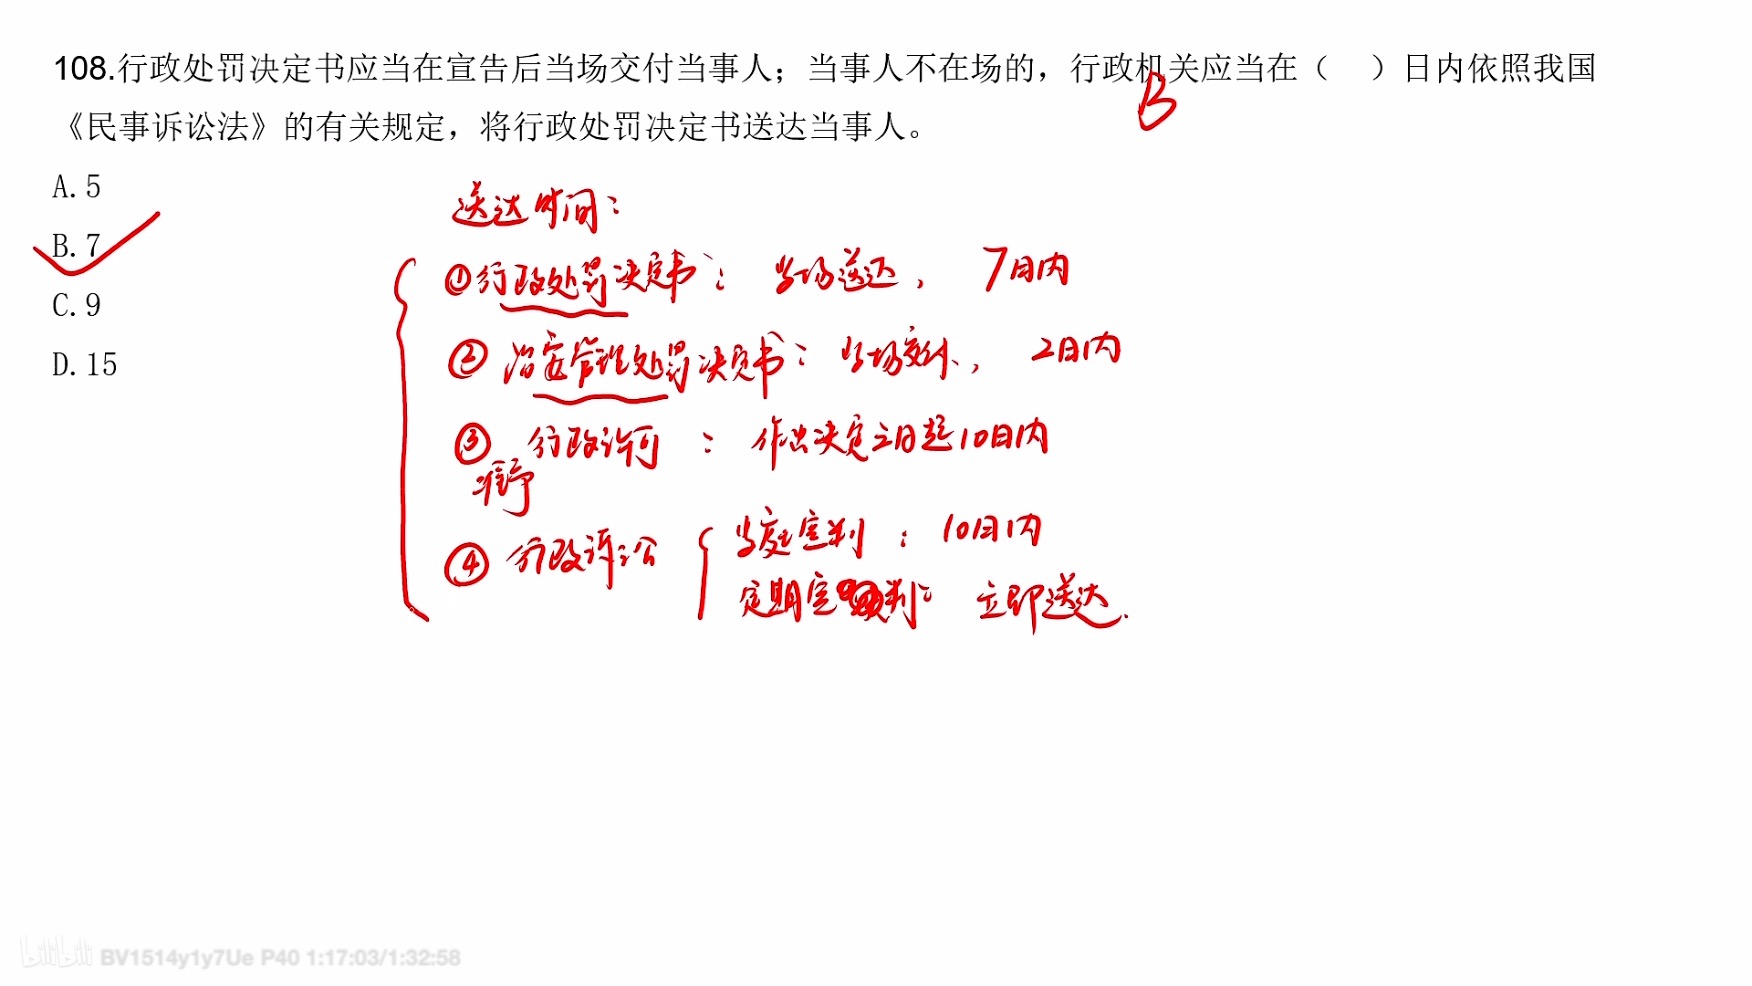 108.行政处罚决定书应当在宣告后当场交付当事人；当事人不在场的，行政机关应当在（　）日内依照我国
B
《民事诉讼法》的有关规定，将行政处罚决定书送达当事人。
A.5
B.7
C.9
D.15
送达时间：
①行政处罚决定书：当场送达，7日内
②治安管理处罚决定书：当场交付，2日内
③准予行政许可：作出决定之日起10日内
④行政诉讼
当庭宣判：10日内
定期宣判：立即送达.
bilibili BV1514y1y7Ue P40 1:17:03/1:32:58